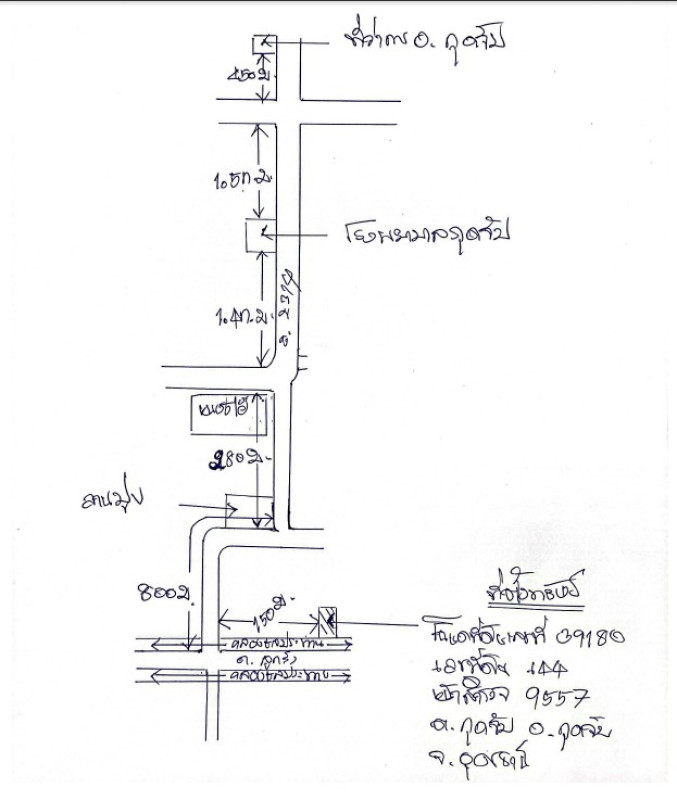 ที่ว่าการ อ. กุดจับ
450 ม.
1.5 ก.ม.
โรงพยาบาลกุดจับ
1.4 ก.ม.
280 ม.
ลานมุ่ง
800 ม.
150 ม.
คลองชลประทาน
ถ. ลูกรัง
คลองชลประทาน
ที่ตั้งทรัพย์
โฉนดที่ดินเลขที่ 39180
เลขที่ดิน 144
หน้าสำรวจ 9557
ต. กุดจับ อ. กุดจับ
จ. อุดรธานี